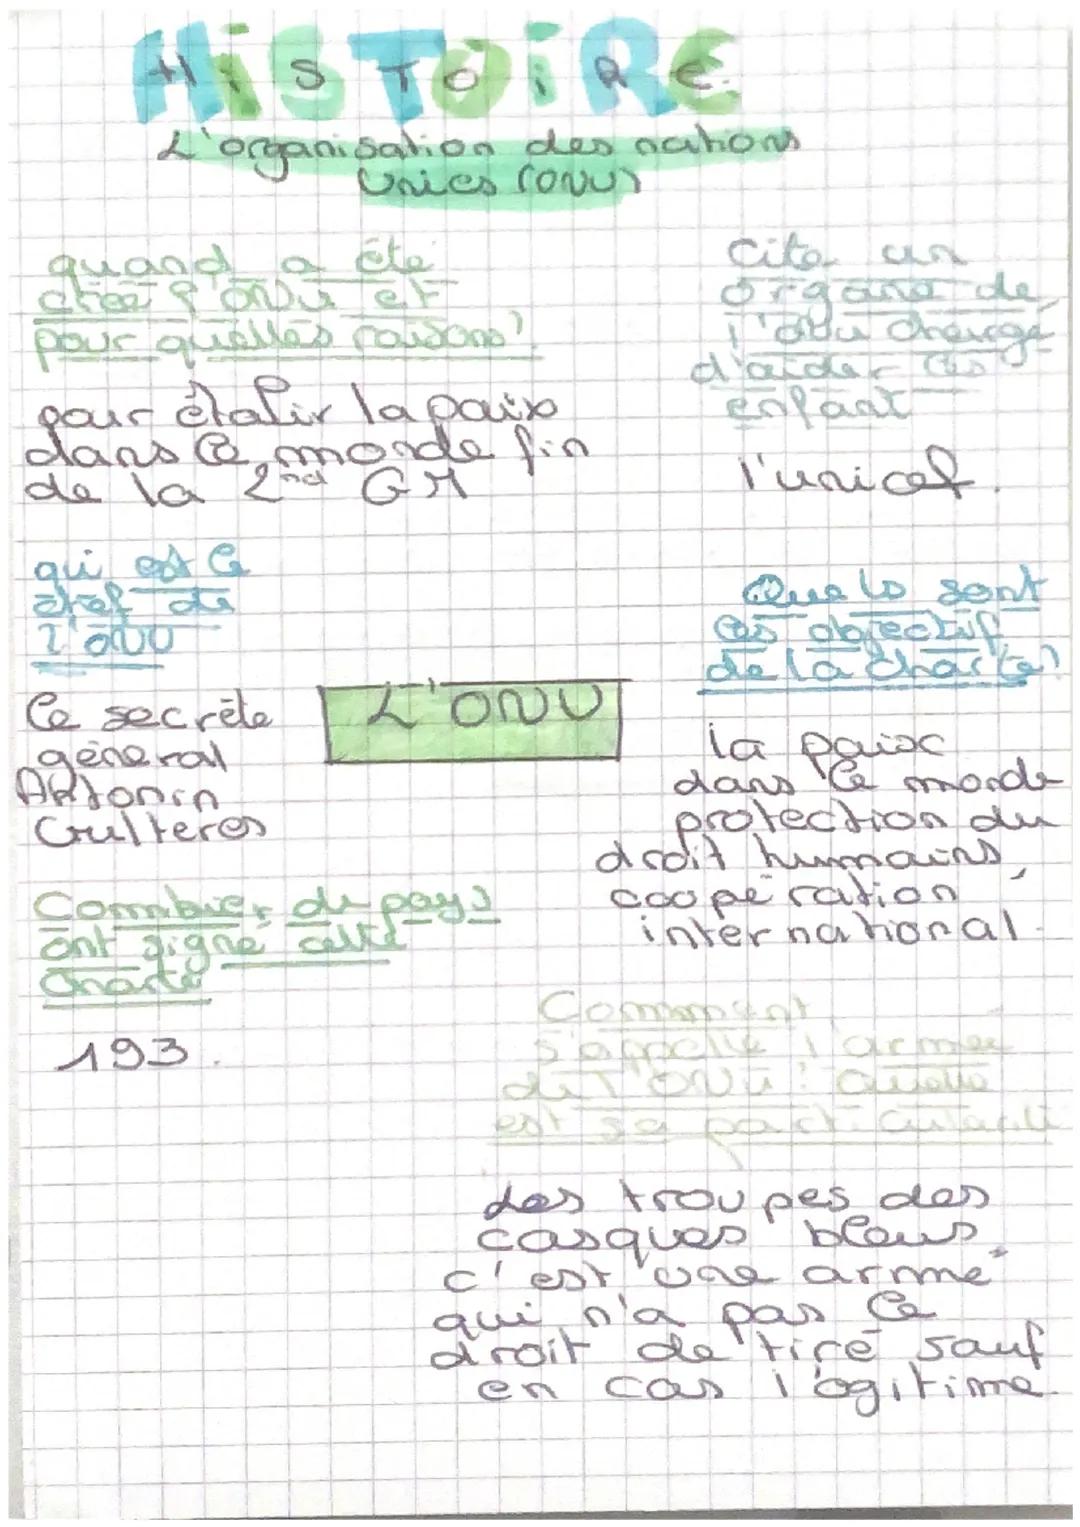 HiSTOiRE
L'organisation des nations
Unies (ONU)
quand a été
créé l'ONU et
pour quelles raisons?
pour établir la paix
dans le monde fin
de la 2nd GM
qui est le
chef de
l'ONU
le secrète
général
Antonin
Gulteros
Combien de pays
ont signé cette
charte
193.
L'ONU
Cite un
organe de
l'ONU chargé
d'aider les
enfant
l'unicef.
Quels sont
les objectif
de la charte?
la paix
dans le monde
protection du
droit humains,
coopération
international.
Comment
s'appelle l'armée
de l'ONU? Quelle
est sa particularité
des troupes des
casques bleus,
c'est une armmé
qui n'a pas le
droit de tiré sauf
en cas l'ogitime.